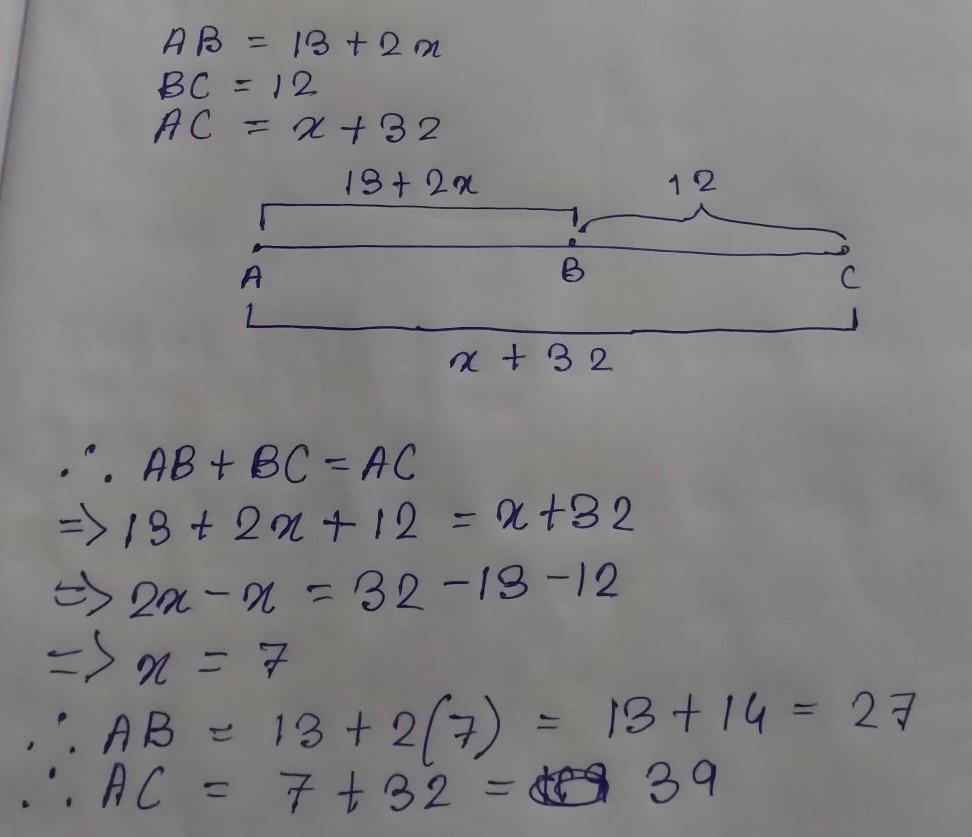 AB = 13 + 2x
BC = 12
AC = x + 32
13 + 2x 12
A B C
x + 32
∴ AB + BC = AC
=> 13 + 2x + 12 = x + 32
=> 2x - x = 32 - 13 - 12
=> x = 7
∴ AB = 13 + 2(7) = 13 + 14 = 27
∴ AC = 7 + 32 = 39